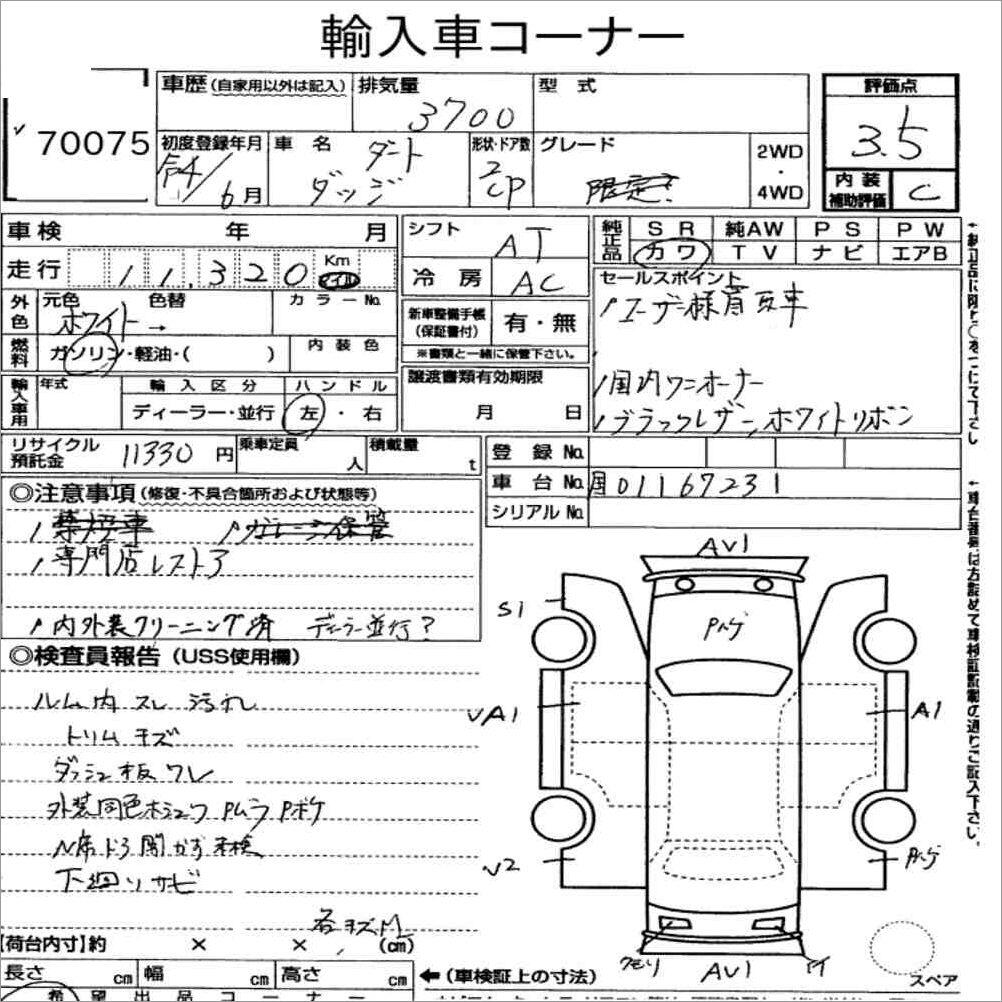 輸入車コーナー
70075
車歴(自家用以外は記入) 排気量 3700 型式
初度登録年月 R4/6月 車名 ダート ダッジ 形状・ドア数 2 CP グレード 限定 2WD・4WD
評価点 3.5
内装補助評価 C
車検 年 月
走行 11,320 Km マイル
シフト AT
冷房 AC
純正品 SR 純AW PS PW
カワ TV ナビ エアB
外色 元色 ホワイト → 色替 カラーNo.
燃料 ガソリン・軽油・( ) 内装色
新車整備手帳(保証書付) 有・無
※書類と一緒に保管下さい。
セールスポイント
ユーザー様買取車
国内ワンオーナー
ブラックレザー ホワイトリボン
輸入車用 年式 輸入区分 ハンドル
ディーラー・並行 左・右
譲渡書類有効期限
月 日
リサイクル預託金 11330円 乗車定員 人 積載量 t
登録No.
車台No. 国 01167231
シリアルNo.
◎注意事項(修復・不具合箇所および状態等)
専門店レストア
内外装クリーニング済 ディーラー並行?
◎検査員報告(USS使用欄)
ルーム内 スレ 汚れ
トリム キズ
ダッシュ板 ワレ
外装同色ホシュウ Pムラ Pボケ
N席ドア開かず 車検
下廻りサビ
各キズ M
AV1
S1
Pハゲ
VA1
A1
V2
Pハゲ
クモリ AV1
スペア
【荷台内寸】約 × × (cm)
長さ cm 幅 cm 高さ cm
←(車検証上の寸法)
希望出品コーナー
↑純正品に限り○をつけて下さい
↑車台番号は左詰めで車検証記載の通りご記入下さい。